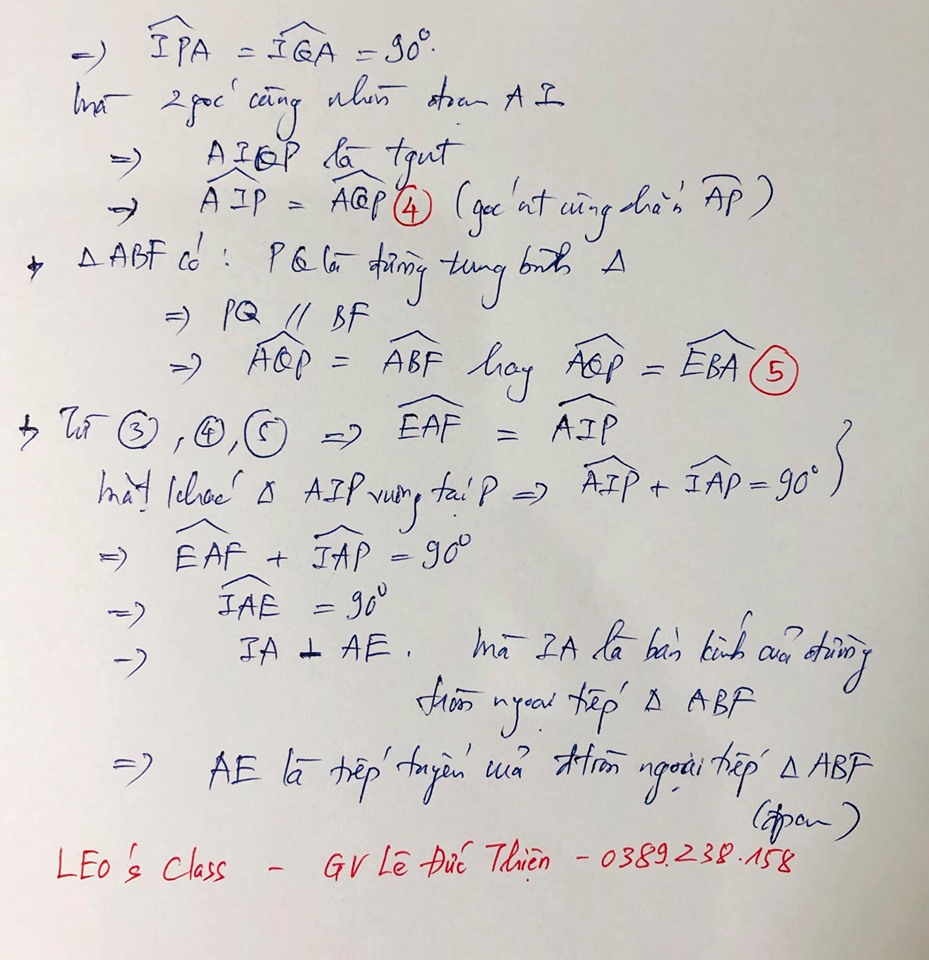 => IPA = IQA = 90°.
mà 2 góc cùng nhìn đoạn AI
=> AIQP là tgnt
=> AIP = AQP ④ (góc nt cùng chắn AP)
+ Δ ABF có : PQ là đường trung bình Δ
=> PQ // BF
=> AQP = ABF hay AQP = EBA ⑤
+ Từ ③, ④, ⑤ => EAF = AIP
mặt khác Δ AIP vuông tại P => AIP + IAP = 90° }
=> EAF + IAP = 90°
=> IAE = 90°
=> IA ⊥ AE. mà IA là bán kính của đường
tròn ngoại tiếp Δ ABF
=> AE là tiếp tuyến của đtròn ngoại tiếp Δ ABF
(đpcm)
LEO's Class - GV Lê Đức Thiện - 0389.238.158